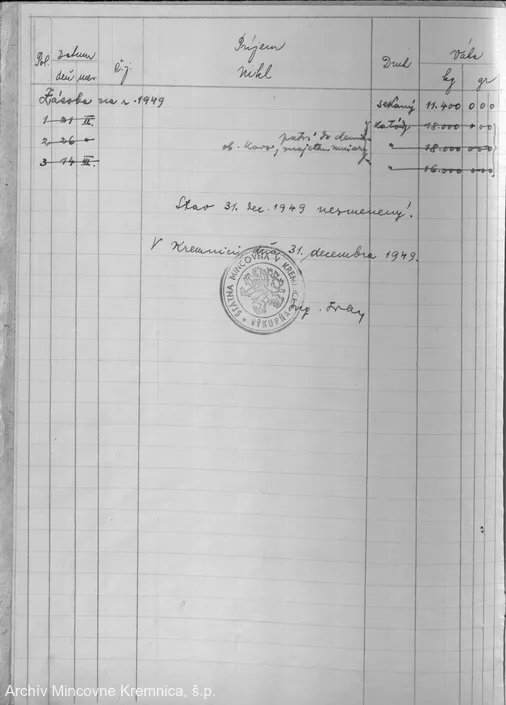 Pol. Dátum Č.j. Príjem Druh Váha
deň mes. Nikl kg gr
Zásoba na r. 1949 sekaný 11.400 000
1 21 II. katódy 18.000 000
2 26 " patrí do 18.000 000
ob. kovov, majetku " 
3 14 III. " 16.000 000
Stav 31. dec. 1949 nezmenený.
V Kremnici dňa 31. decembra 1949.
ŠTÁTNA MINCOVŇA V KREMNICI
* VÝKOPŇA *
Ing.
Archív Mincovne Kremnica, š.p.